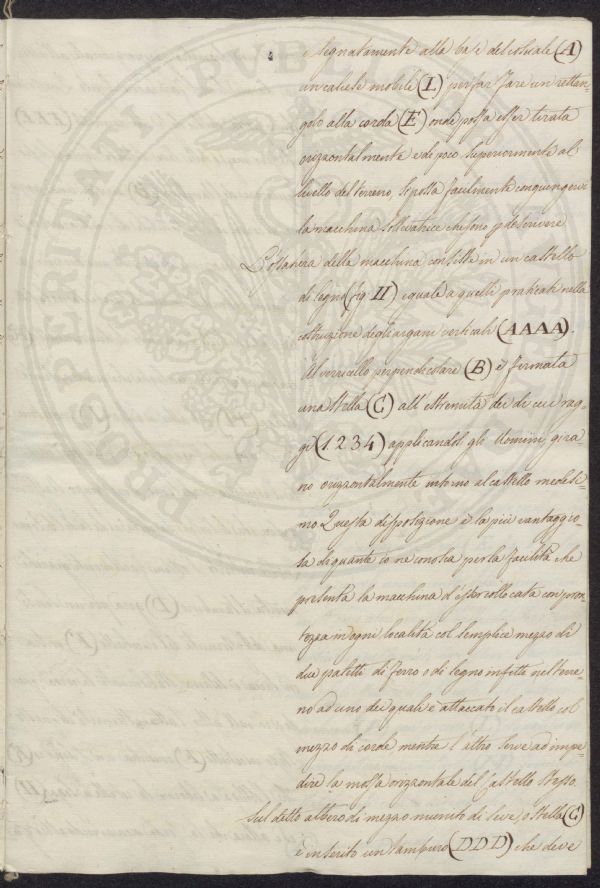 e segnatamente alla base del coscale (A)
un calcese mobile (I) per far fare un rettan-
golo alla corda (E) onde possa esser tirata
orizzontalmente e di poco superiormente al
livello del terreno, si possa facilmente congiungere
la macchina sollevatrice che sono p descrivere
L'ossatura della macchina consiste in un castello
di legno (fig. II) eguale a quelli praticati nella
costruzione degli argani verticali (AAAA).
Al verricello perpendicolare (B) è fermata
una stella (C) all'estremità dei di cui rag-
gi (1234) applicandosi gli Uomini gira-
no orizzontalmente intorno al castello medesi-
mo. Questa disposizione è la più vantaggio-
sa di quante io ne conosca per la facilità che
presenta la macchina d'esser collocata con pron-
tezza in ogni località col semplice mezzo di
due paletti di ferro o di legno infitti nel terre-
no ad uno de' quali è attaccato il castello col
mezzo di corde mentre l'altro serve ad impe-
dire la mossa orizzontale del castello stesso.
Sul detto albero di mezzo munito di leve, o stella (C)
è inserito un tamburo (DDD) che deve